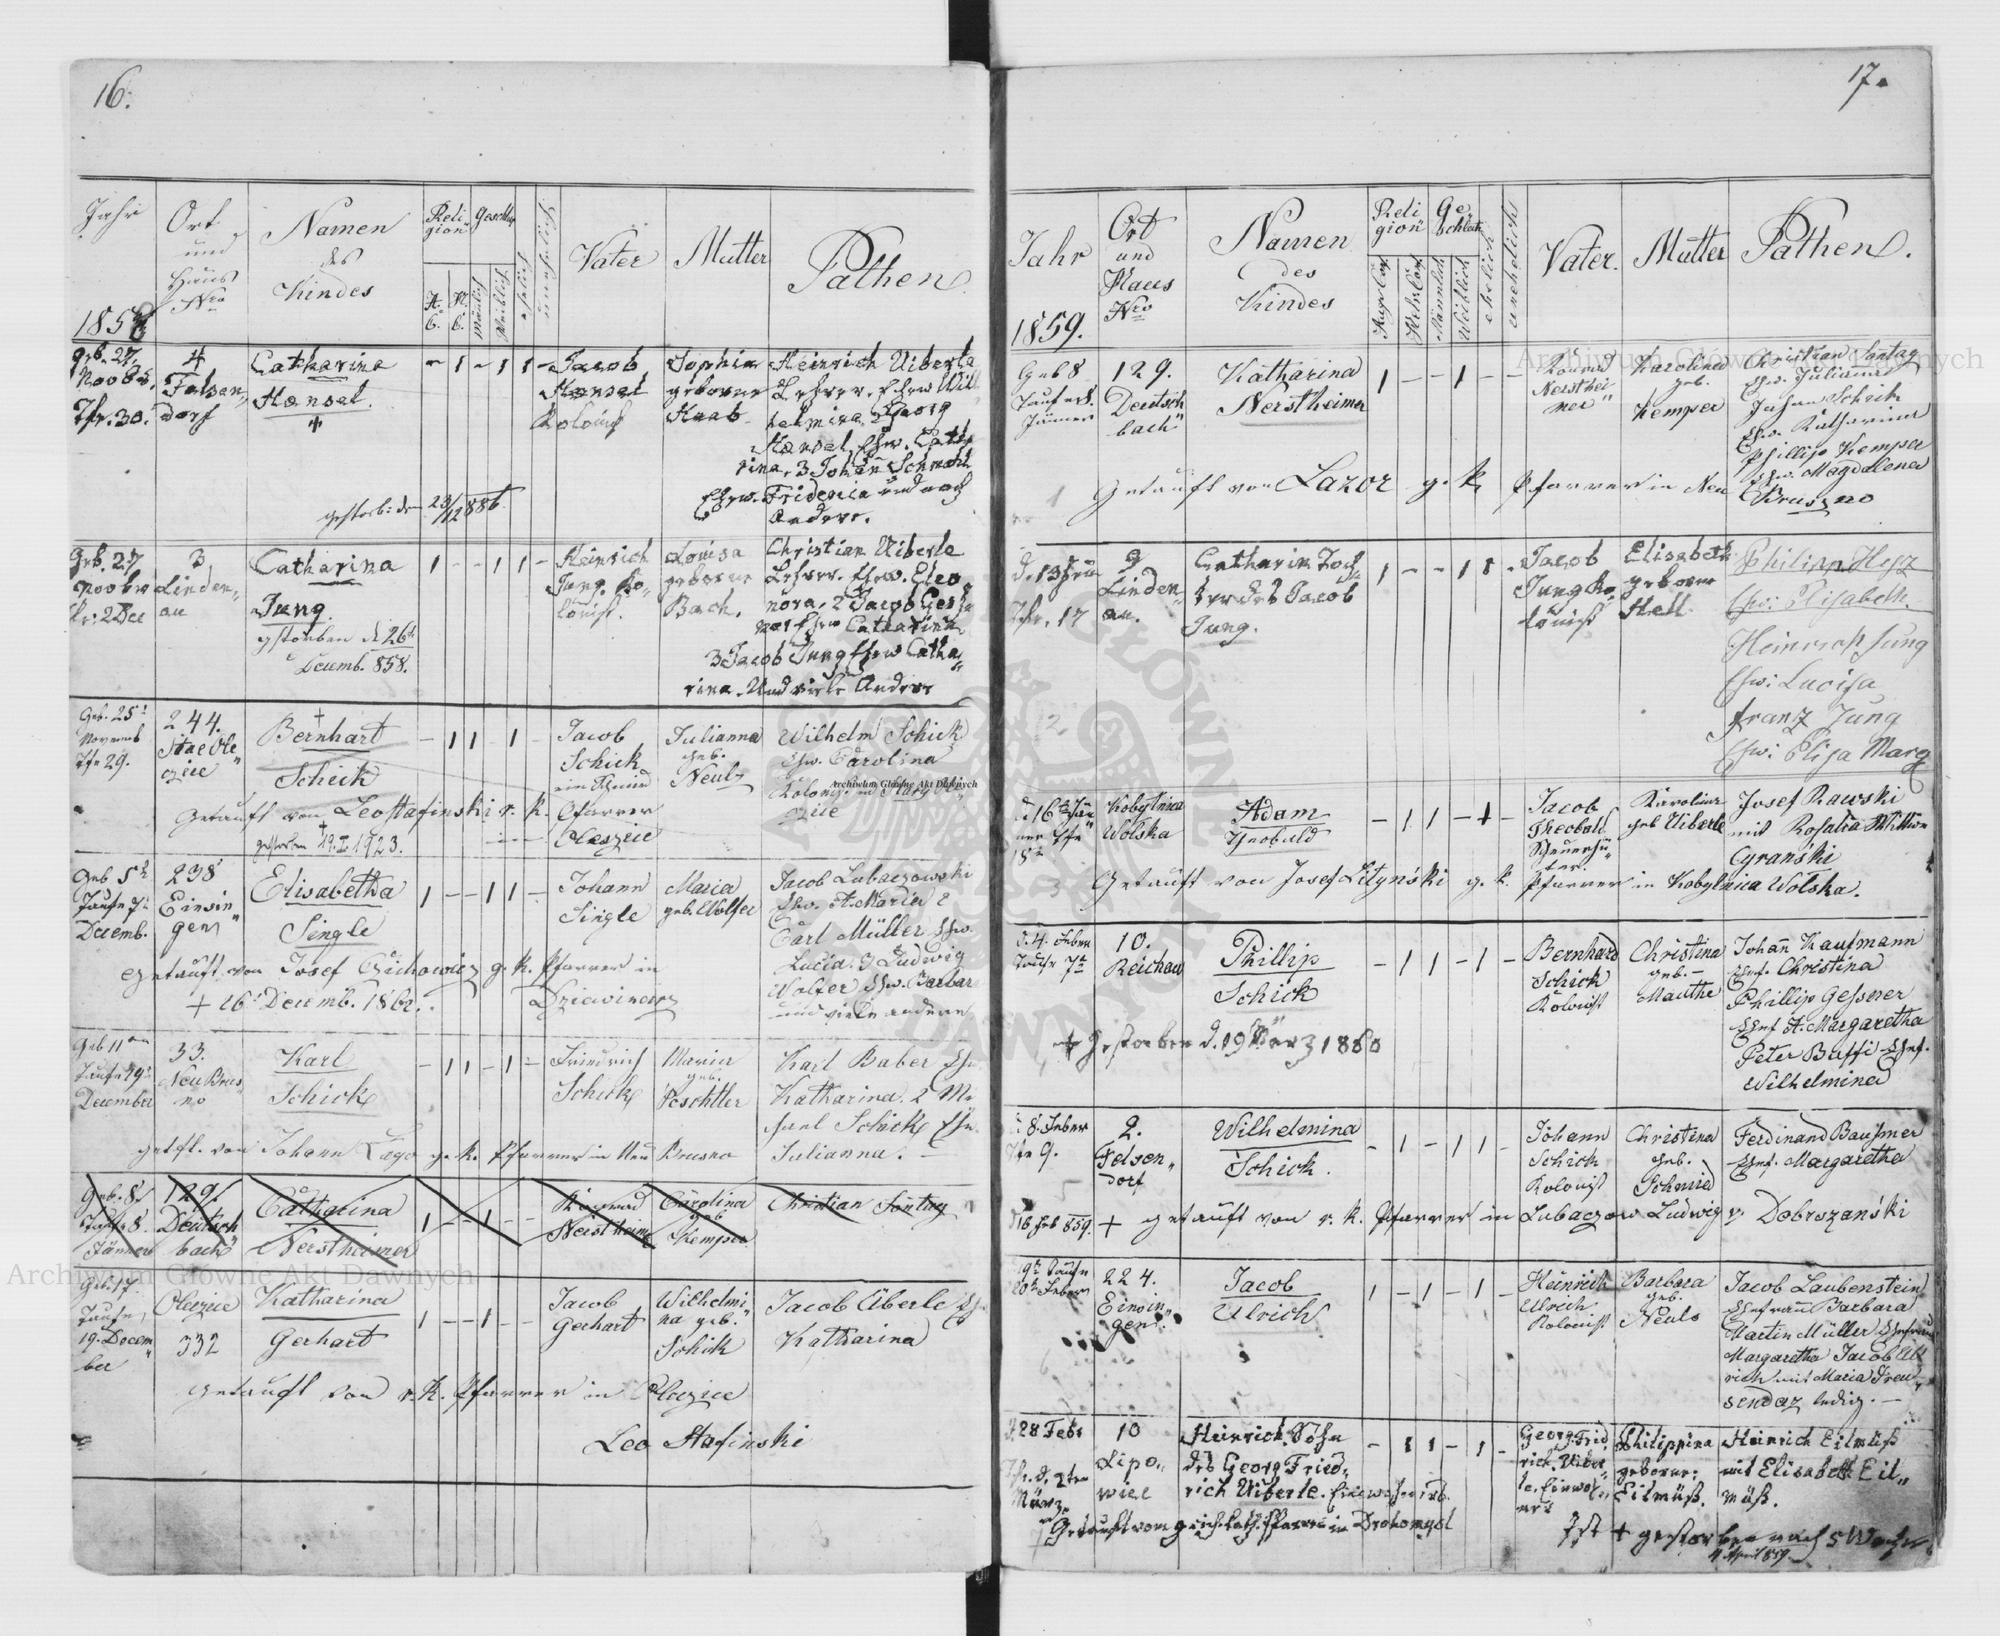 16.
Jahr
Ort
und
Haus
Nro
Namen
des
Kindes
Reli
gion
Geschl
A.
C.
H.
C.
Mänlich
Weiblich
ehelich
unehelich
Vater
Mutter
Pathen.
1858
Geb. 27.
Novbr.
Tfe. 30.
4
Felsen„
dorf
Catharina
Hansel.
- 1 - 1 1 -
Jacob
Hansel
Kolonist
Sophia
geborne
Haab
Heinrich Uiberle
Lehrer, Ehew Wil
helmina, 2 Georg
Hansel, Ehw. Catha
rina, 3 Johan Schmahl
Ehew. Friderica und noch
Andere.
gestorb: den 23/12 886
Geb. 27
Novbr
Tfr: 2 Dec
3
Linden„
au
Catharina
Jung
gstorben d 26t
Decemb. 858.
1 - - 1 1 -
Heinrich
Jung, Ko„
lonist.
Louisa
geborne
Bach.
Christian Uiberle
Lehrer. Ehew. Eleo
nora, 2 Jacob Gess
ner Ehew Catharina
3 Jacob Jung Ehew Catha„
rina. Und viele Andere
Geb. 25t
Novemb
Tfe 29.
244.
Stae Ole„
szice
Bernhart
Schick
- 1 1 - 1 -
Jacob
Schick
ein Schmied
Julianna
geb.
Neulz
Wilhelm Schick
Ehw. Carolina
Kolonist in Stary
szice
Getauft von Leo Stafinski r. k. Pfarrer
Oleszice
gestorben 19. I 1923.
Geb 5t
Taufe 7t
Decemb.
238
Einsin„
gen
Elisabetha
Single
1 - - 1 1 -
Johann
Single
Maria
geb. Wolfer
Jacob Lubaczowski
Ehw. A. Maria 2
Carl Müller Ehw.
Lucia. 3 Ludwig
Wolfer Ehw. Barbar
und viele andere
getauft von Josef Czichowicz g. k. Pfarrer in
Dziewiencirz
+ 16t Decemb. 1862.
Geb 11ten
Taufe 19t
December
33.
Neu Brus„
no
Karl
Schick
- 1 1 - 1 -
Friedrich
Schick
Maria
geb.
Poschtler
Karl Baber Ehw
Katharina. 2 Mi
chael Schick Ehw.
Julianna.
getft. von Johann Lazo g. k. Pfarrer in Neu Brusno
Geb. 8.
Taufe 8.
Jänner
129.
Deutsch
bach
Catharina
Nerstheimer
1 - - 1 - -
Konrad
Nerstheimer
Carolina
geb
Kemper
Christian Sontag
Geb. 17.
Taufe
19. Decem„
ber
Oleszice
332
Katharina
Gerhart
1 - - 1 - -
Jacob
Gerhart
Wilhelmi„
na geb.
Schick
Jacob Überle Ehw
Katharina
getauft von r. k. Pfarrer in Oleszice
Leo Stafinski
17.
Jahr
1859.
Ort
und
Haus
Nro
Namen
des
Kindes
Reli
gion
Ge„
schlecht
Männlich
Weiblich
ehelich
unehelich
Vater.
Mutter
Pathen.
Geb 8
Taufe 8.
Jänner
129.
Deutsch
bach
Katharina
Nerstheimer
1 - - 1 - -
Konrad
Nersthei
mer
Karolina
geb.
Kemper
Christian Sontag
Ehw. Julianna
Johan Schick
Ehw. Katharina
Phillip Kemper
Ehw. Magdalena
Getauft von Lazor g. k. Pfarrer in Neu Bruszno
d. 13 Jenn
Tfe. 17
9
Linden„
au.
Catharin Toch„
ter des Jacob
Jung.
1 - - 1 1 -
Jacob
Jung Ko„
lonist
Elisabeth
geborne
Hell
Philipp Hesz
Ehw: Elisabeth.
Heinrich Jung
Ehw: Luoisa
Franz Jung
Ehw: Elisa Marg
d 16t Jän
ner Tfe
18t
Kobylnica
Wolska
Adam
Theobald
- 1 1 - 1 -
Jacob
Theobald
Scheuerhü„
ter.
Karolina
geb Uiberle
Josef Rawski
mit Rosalia Wittwe
Cyrański
Getauft von Josef Lityński g. k. Pfarrer in Kobylnica Wolska.
d. 4. Feber
Taufe 7t
10.
Reichau
Phillip
Schick
- 1 1 - 1 -
Bernhard
Schick
Kolonist
Christina
geb.
Mauthe
Johan Kaufmann
Ehef. Christina
Phillip Gessner
Ehef A. Margaretha
Peter Buffi Ehef.
Wilhelmina
+ Gestorben d. 19 März 1880
d 8. Feber
Tfe 9.
2.
Felsen„
dorf
Wilhelmina
Schick.
- 1 - 1 1 -
Johann
Schick
Kolonist
Christina
geb.
Schmied
Ferdinand Bausmer
Ehef. Margaretha
16 Feb 859. + getauft von r. k. Pfarrer in Lubaczow Ludwig v. Dobrszański
19t Taufe
20t Feber
224.
Einsin„
gen
Jacob
Ulrich
1 - 1 - 1 -
Heinrich
Ulrich
Kolonist
Barbara
geb.
Neuls
Jacob Laubenstein
Ehefrau Barbara
Martin Müller Ehefrau
Margaretha Jacob Ul
rich mit Maria Treu„
sendaz ledig.
d. 28 Febr
Tfe. d. 2ten
März
10
Lipo„
wiec
Heinrich, Sohn
des Georg Fried„
rich Uiberle.
- 1 1 - 1 -
Georg Frid
rich, Uiber„
le, Einwoh„
ner
Philippina
geborne:
Eilmüß.
Heinrich Eilmüß
mit Elisabeth Eil„
müß.
Getauft vom griech. kath. Pfarrer in Drohomysl
Ist + gestorben nach 5 Wochen
4 April 859.
Archiwum Główne Akt Dawnych
Archiwum Główne Akt Dawnych
Archiwum Główne Akt Dawnych